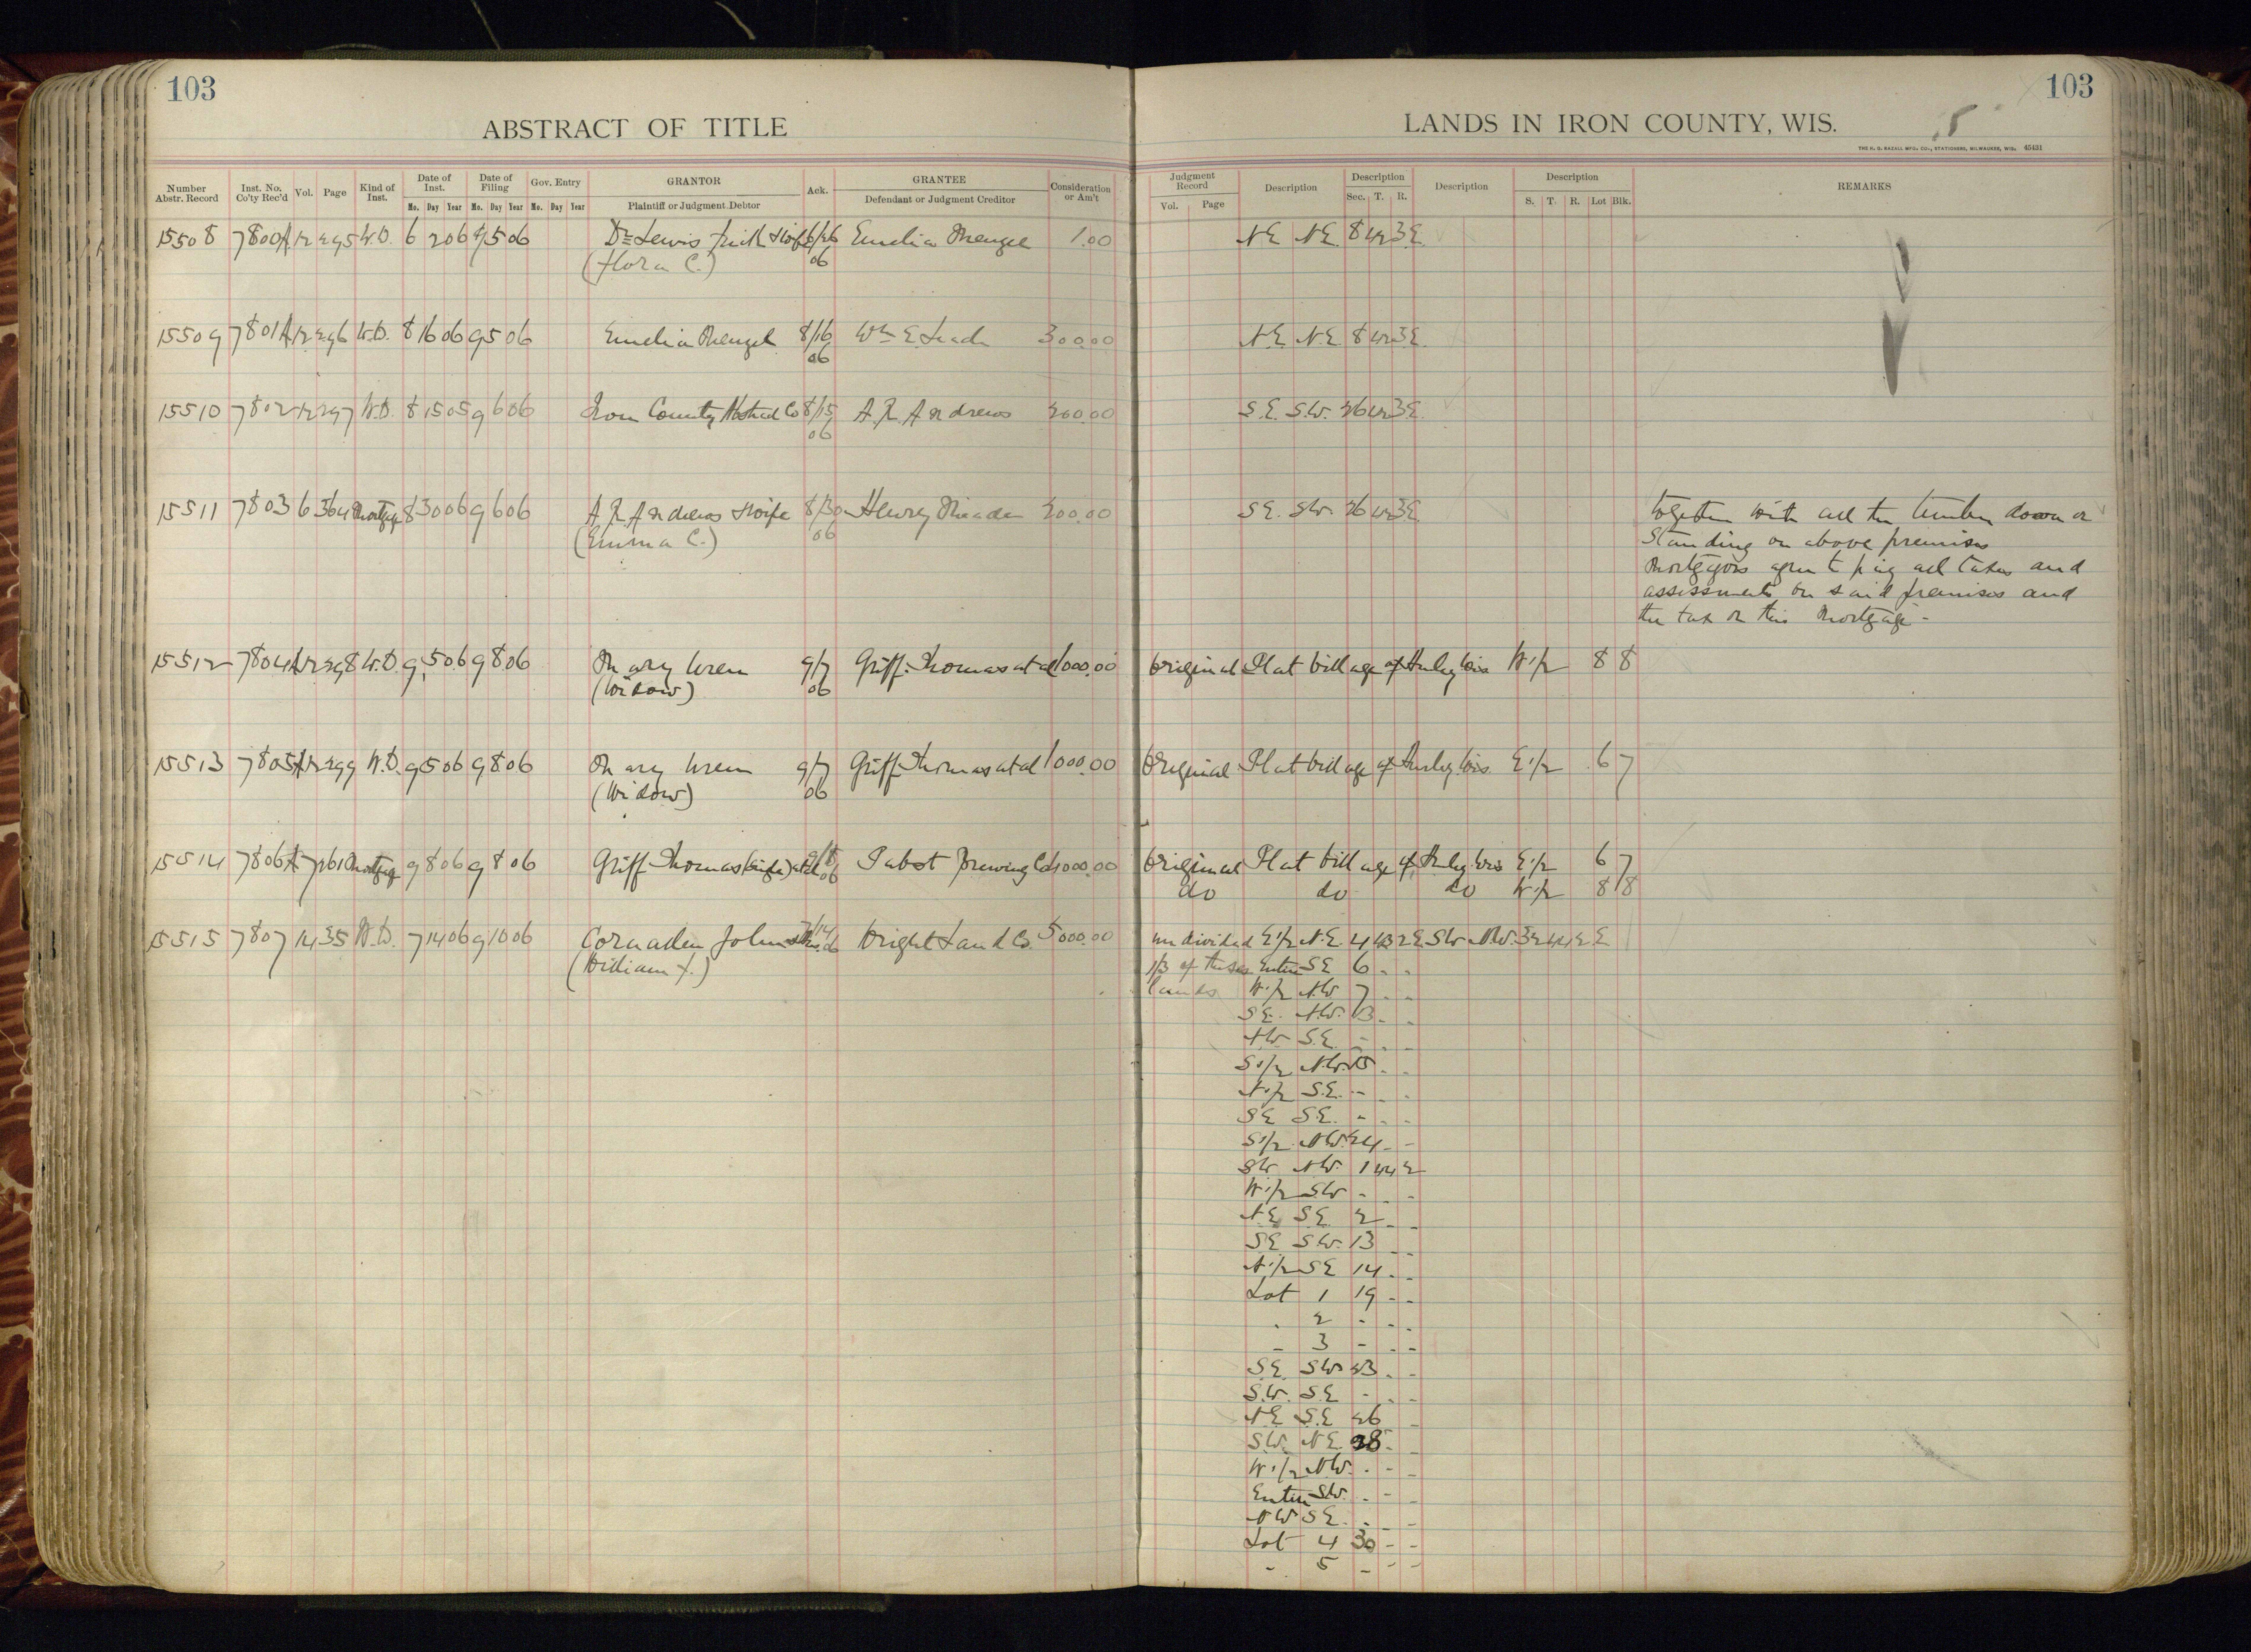 103
ABSTRACT OF TITLE
Number Abstr. Record Inst. No. Co'ty Rec'd Vol. Page Kind of Inst. Date of Inst. Mo. Day Year Date of Filing Mo. Day Year Gov. Entry Mo. Day Year GRANTOR Plaintiff or Judgment Debtor Ack. GRANTEE Defendant or Judgment Creditor Consideration or Am't
103
LANDS IN IRON COUNTY, WIS.
5
THE H. G. RAZALL MFG. CO., STATIONERS, MILWAUKEE, WIS. 45431
Judgment Record Vol. Page Description Description Sec. T. R. Description Description S. T. R. Lot Blk. REMARKS
15508 7800 W.D. 6 2 06 9 5 06 Dr Lewis & wife 6/26 Emelia 1.00 NE NE 8 42 3E
(Flora C.) 06
15509 7801 12 296 W.D. 8 16 06 9 5 06 Emelia 8/16 Wm E. 300.00 N.E. N.E. 8 42 3E
06
15510 7802 12 297 W.D. 8 15 05 9 6 06 Iron County Co 8/15 A. R. Andrews 200.00 S.E. S.W. 26 42 3E
06
15511 7803 6 364 Mortgage 8 30 06 9 6 06 A. R. Andrews & wife 8/30 Henry Meade 200.00 SE. SW. 26 42 3E together with all the timber down or
(Emma C.) 06 Standing on above premises
Mortgagors agree to pay all taxes and
assessments on said premises and
the tax on this Mortgage -
15512 7804 12 298 W.D. 9 5 06 9 8 06 Mary Wren 9/7 Griff Thomas et al 1000.00 Original Plat Village of Hurley Wis W 1/2 8 8
(Widow) 06
15513 7805 12 299 W.D. 9 5 06 9 8 06 Mary Wren 9/7 Griff Thomas et al 1000.00 Original Plat Village of Hurley Wis E 1/2 6 7
(Widow) 06
15514 7806 7 261 Mortgage 9 8 06 9 8 06 Griff Thomas et al 9/8 06 Pabst Brewing Co 1000.00 Original Plat Village of Hurley Wis E 1/2 6 7
do do do W 1/2 8 8
15515 7807 14 35 W.D. 7 14 06 9 10 06 7/14 06 Wright Land Co. 5000.00 undivided E 1/2 N.E. 4 43 2E SW NW. 32 44 2E
(William J.) 1/3 of these Entire SE 6 - -
lands W 1/2 NW 7 - -
SE. NW. 13 - -
NW SE. - - -
S 1/2 NW. 15 - -
N 1/2 SE. - - -
SE SE. - - -
S 1/2 NW. 24 - -
SW NW. 1 44 2
W 1/2 SW - - -
NE SE 2 - -
SE SW. 13 - -
N 1/2 SE 14 - -
Lot 1 19 - -
- 2 - - -
- 3 - - -
SE. SW 23 - -
S.W. SE - - -
NE SE 26 -
S.W. NE. 28 - -
W 1/2 NW. - - -
Entire SW. - - -
NW SE. - - -
Lot 4 30 - -
- 5 - - -